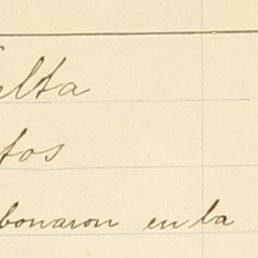 elta
tos
bonaron en la